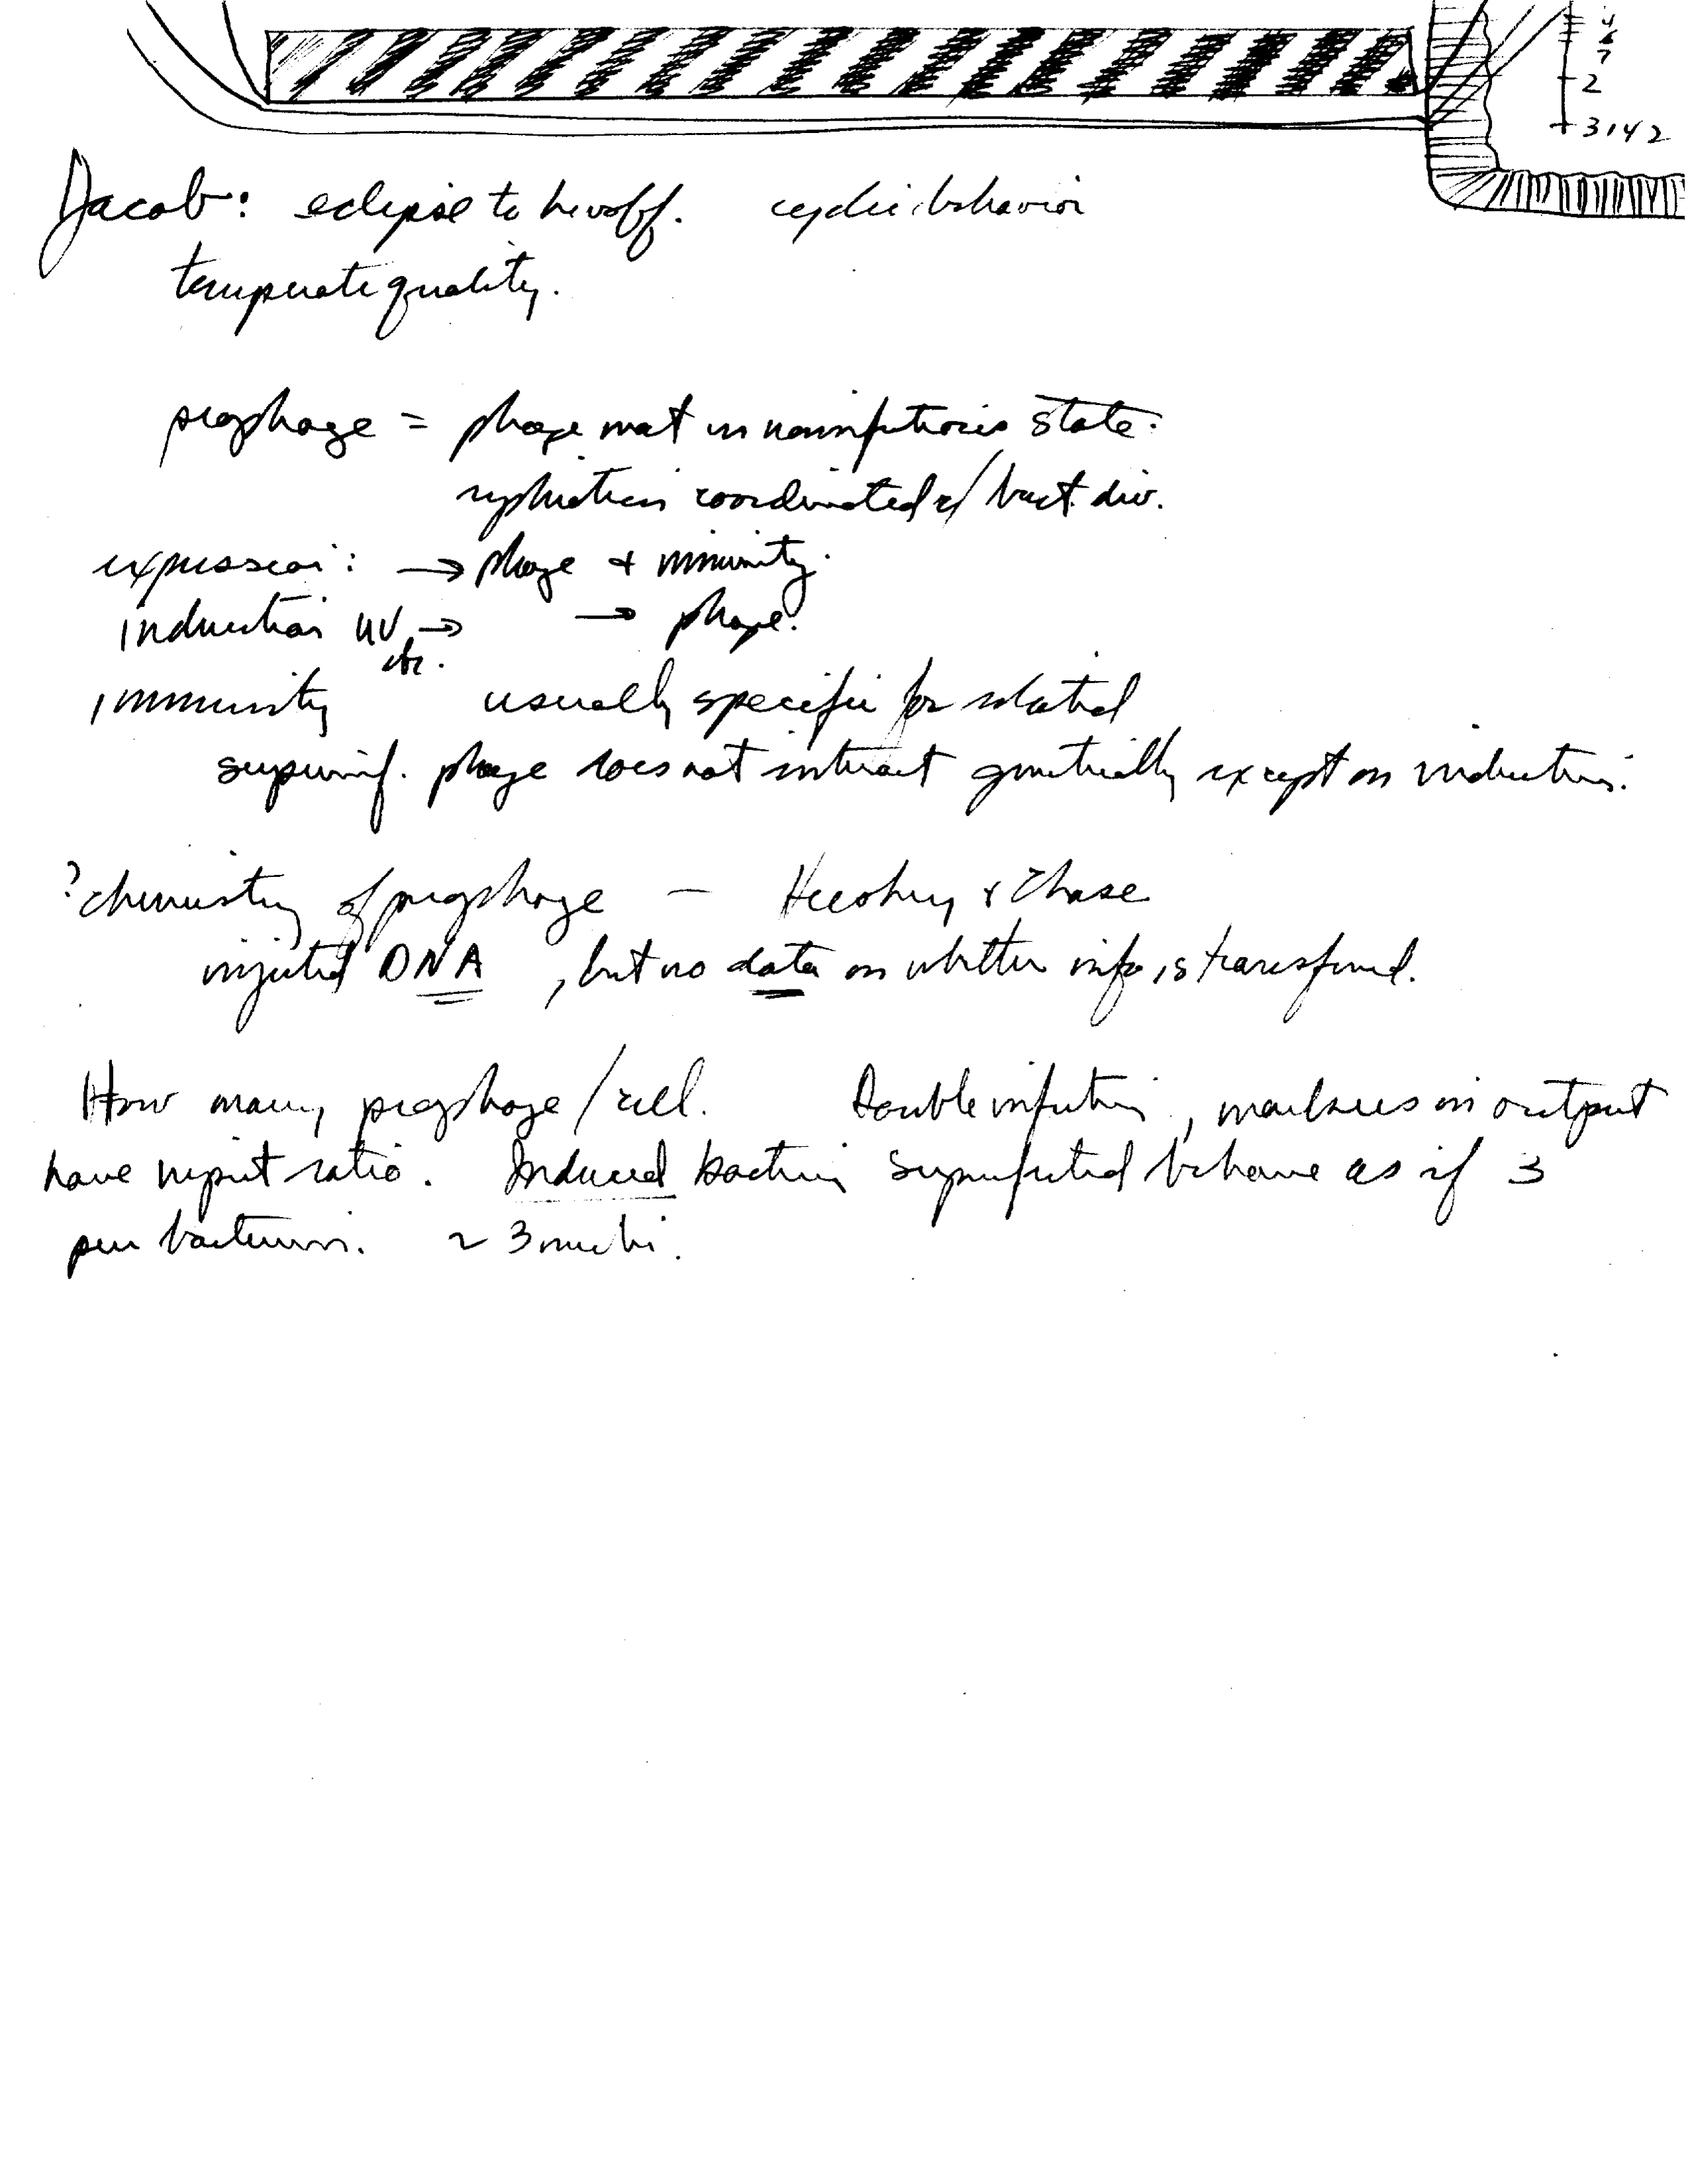 4
6
7
2
3142
Jacob: eclipse to Lwoff. cyclic behavior
temperate quality.
prophage = phage mat in noninfectious state.
replication coordinated w/ bact. div.
expression: → phage + immunity.
induction UV → → phage.
etc.
immunity usually specific for related
superinf. phage does not interact genetically except on induction.
? chemistry of prophage — Hershey & Chase
injected DNA, but no data on whether info is transferred.
How many prophage/cell. Double infection, markers in output
have input ratio. Induced bacteria superinfected behave as if 3
per bacterium. ~ 3 nuclei.